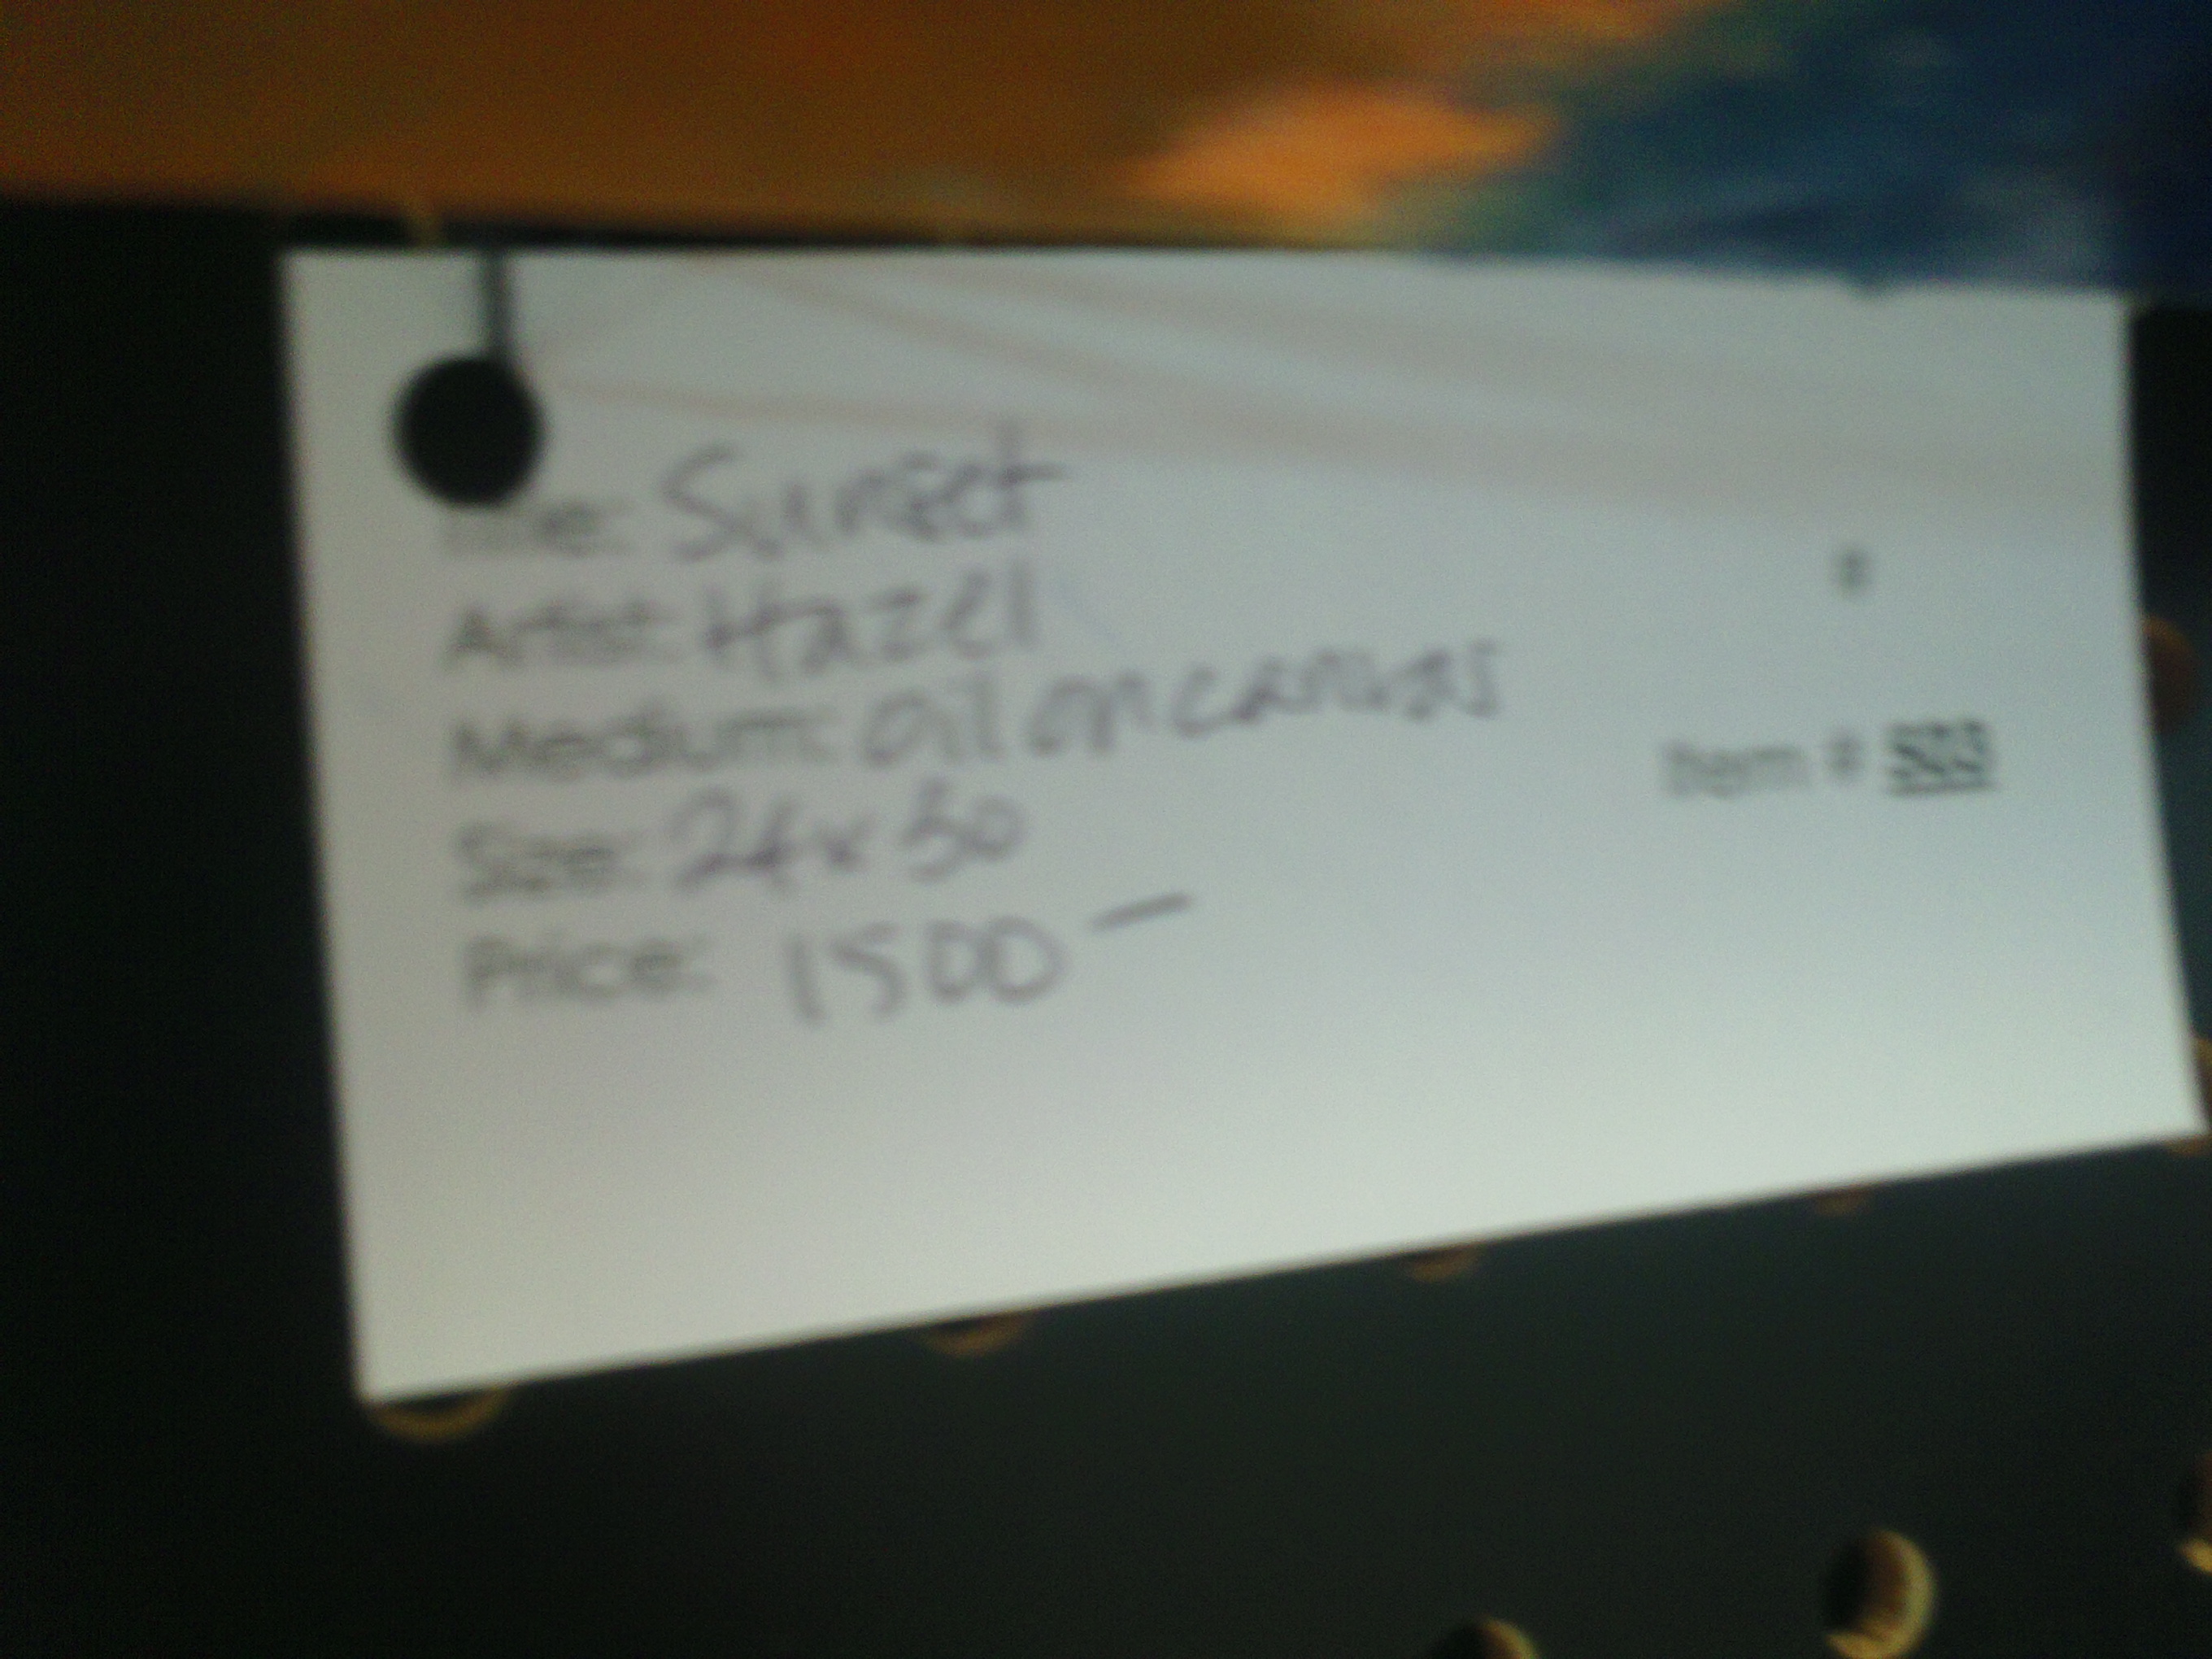 Title: Sunset
Artist: Hazel
Medium: oil on canvas
Item #
Size: 24x30
Price: 1500 —